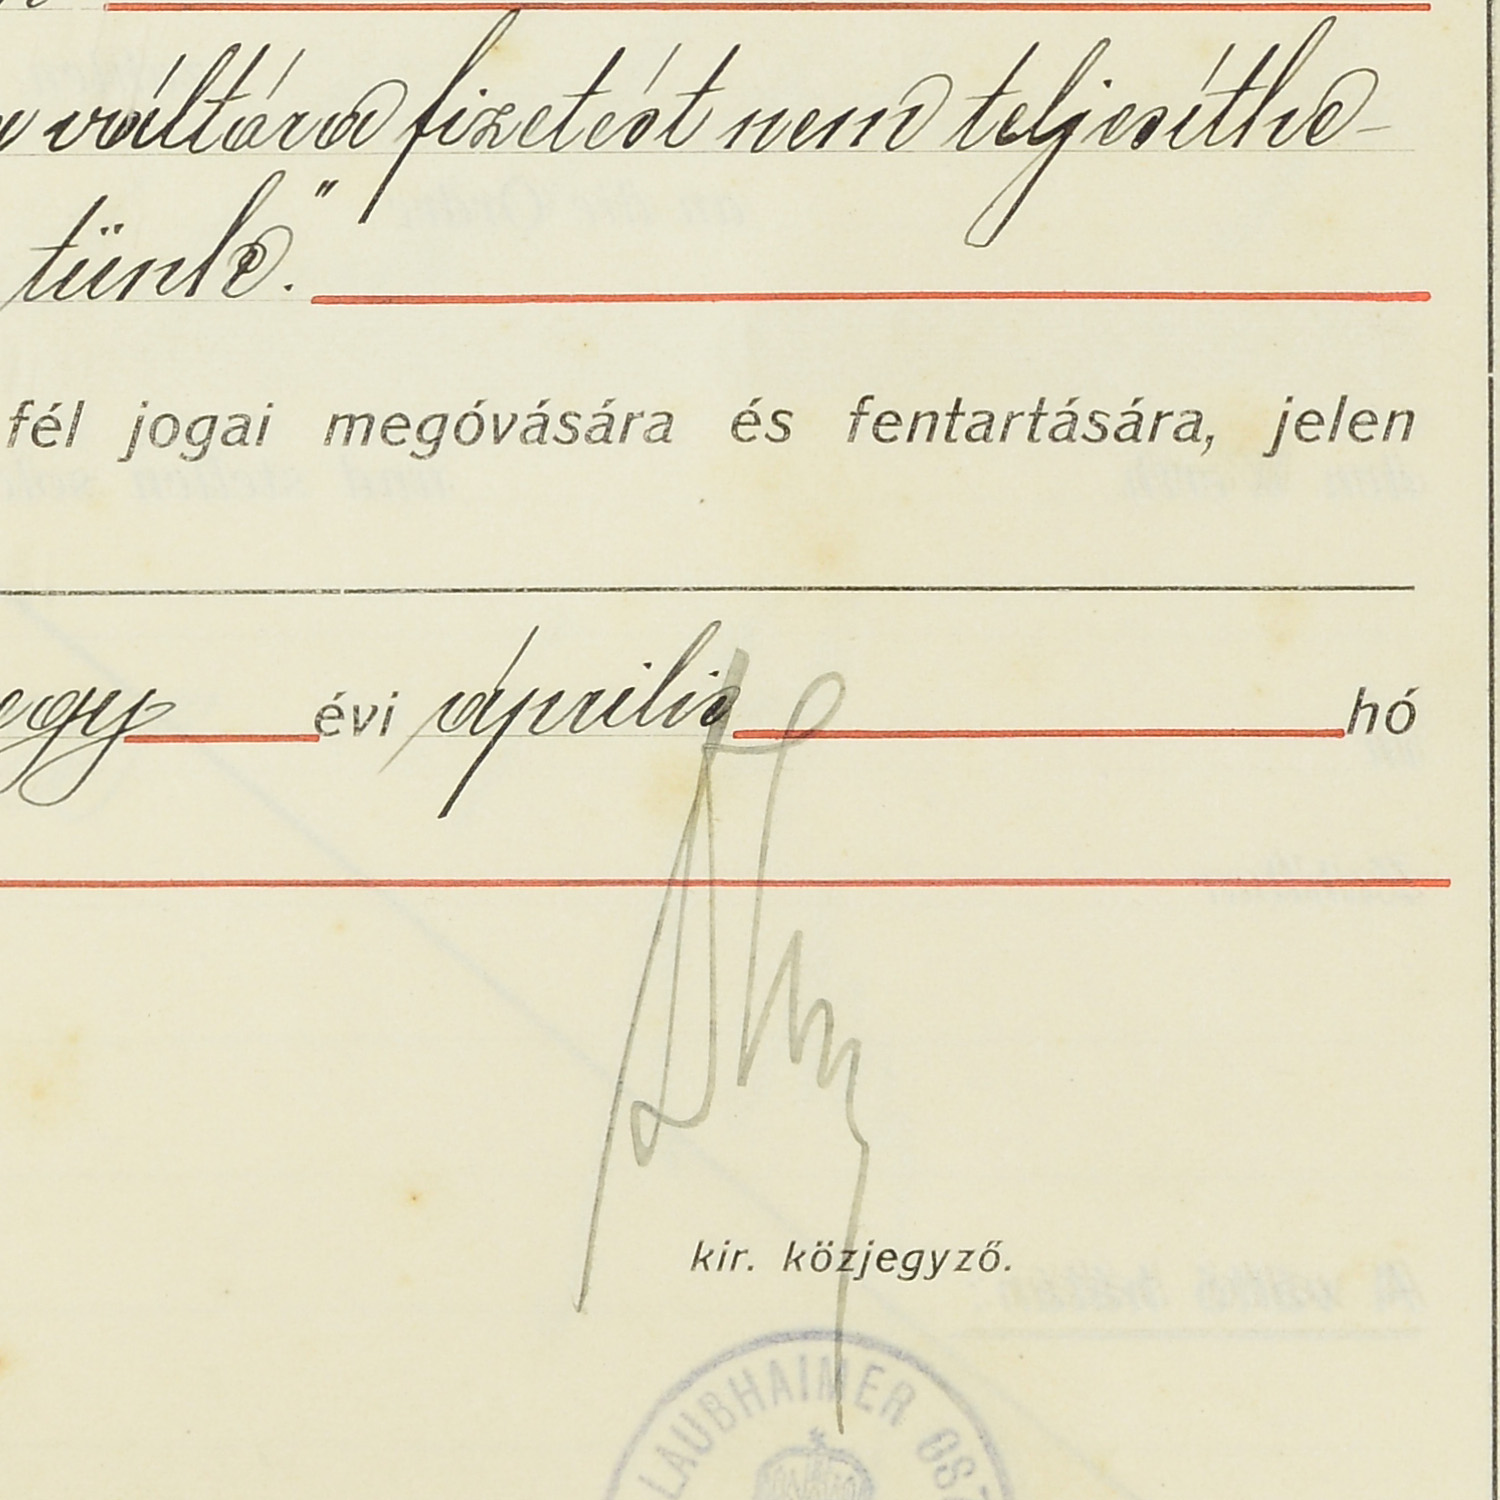 váltóra fizetést nem teljesíthe-
tünk."
fél jogai megóvására és fentartására, jelen
egy évi április hó
kir. közjegyző.
LAUBHAIMER OSZ